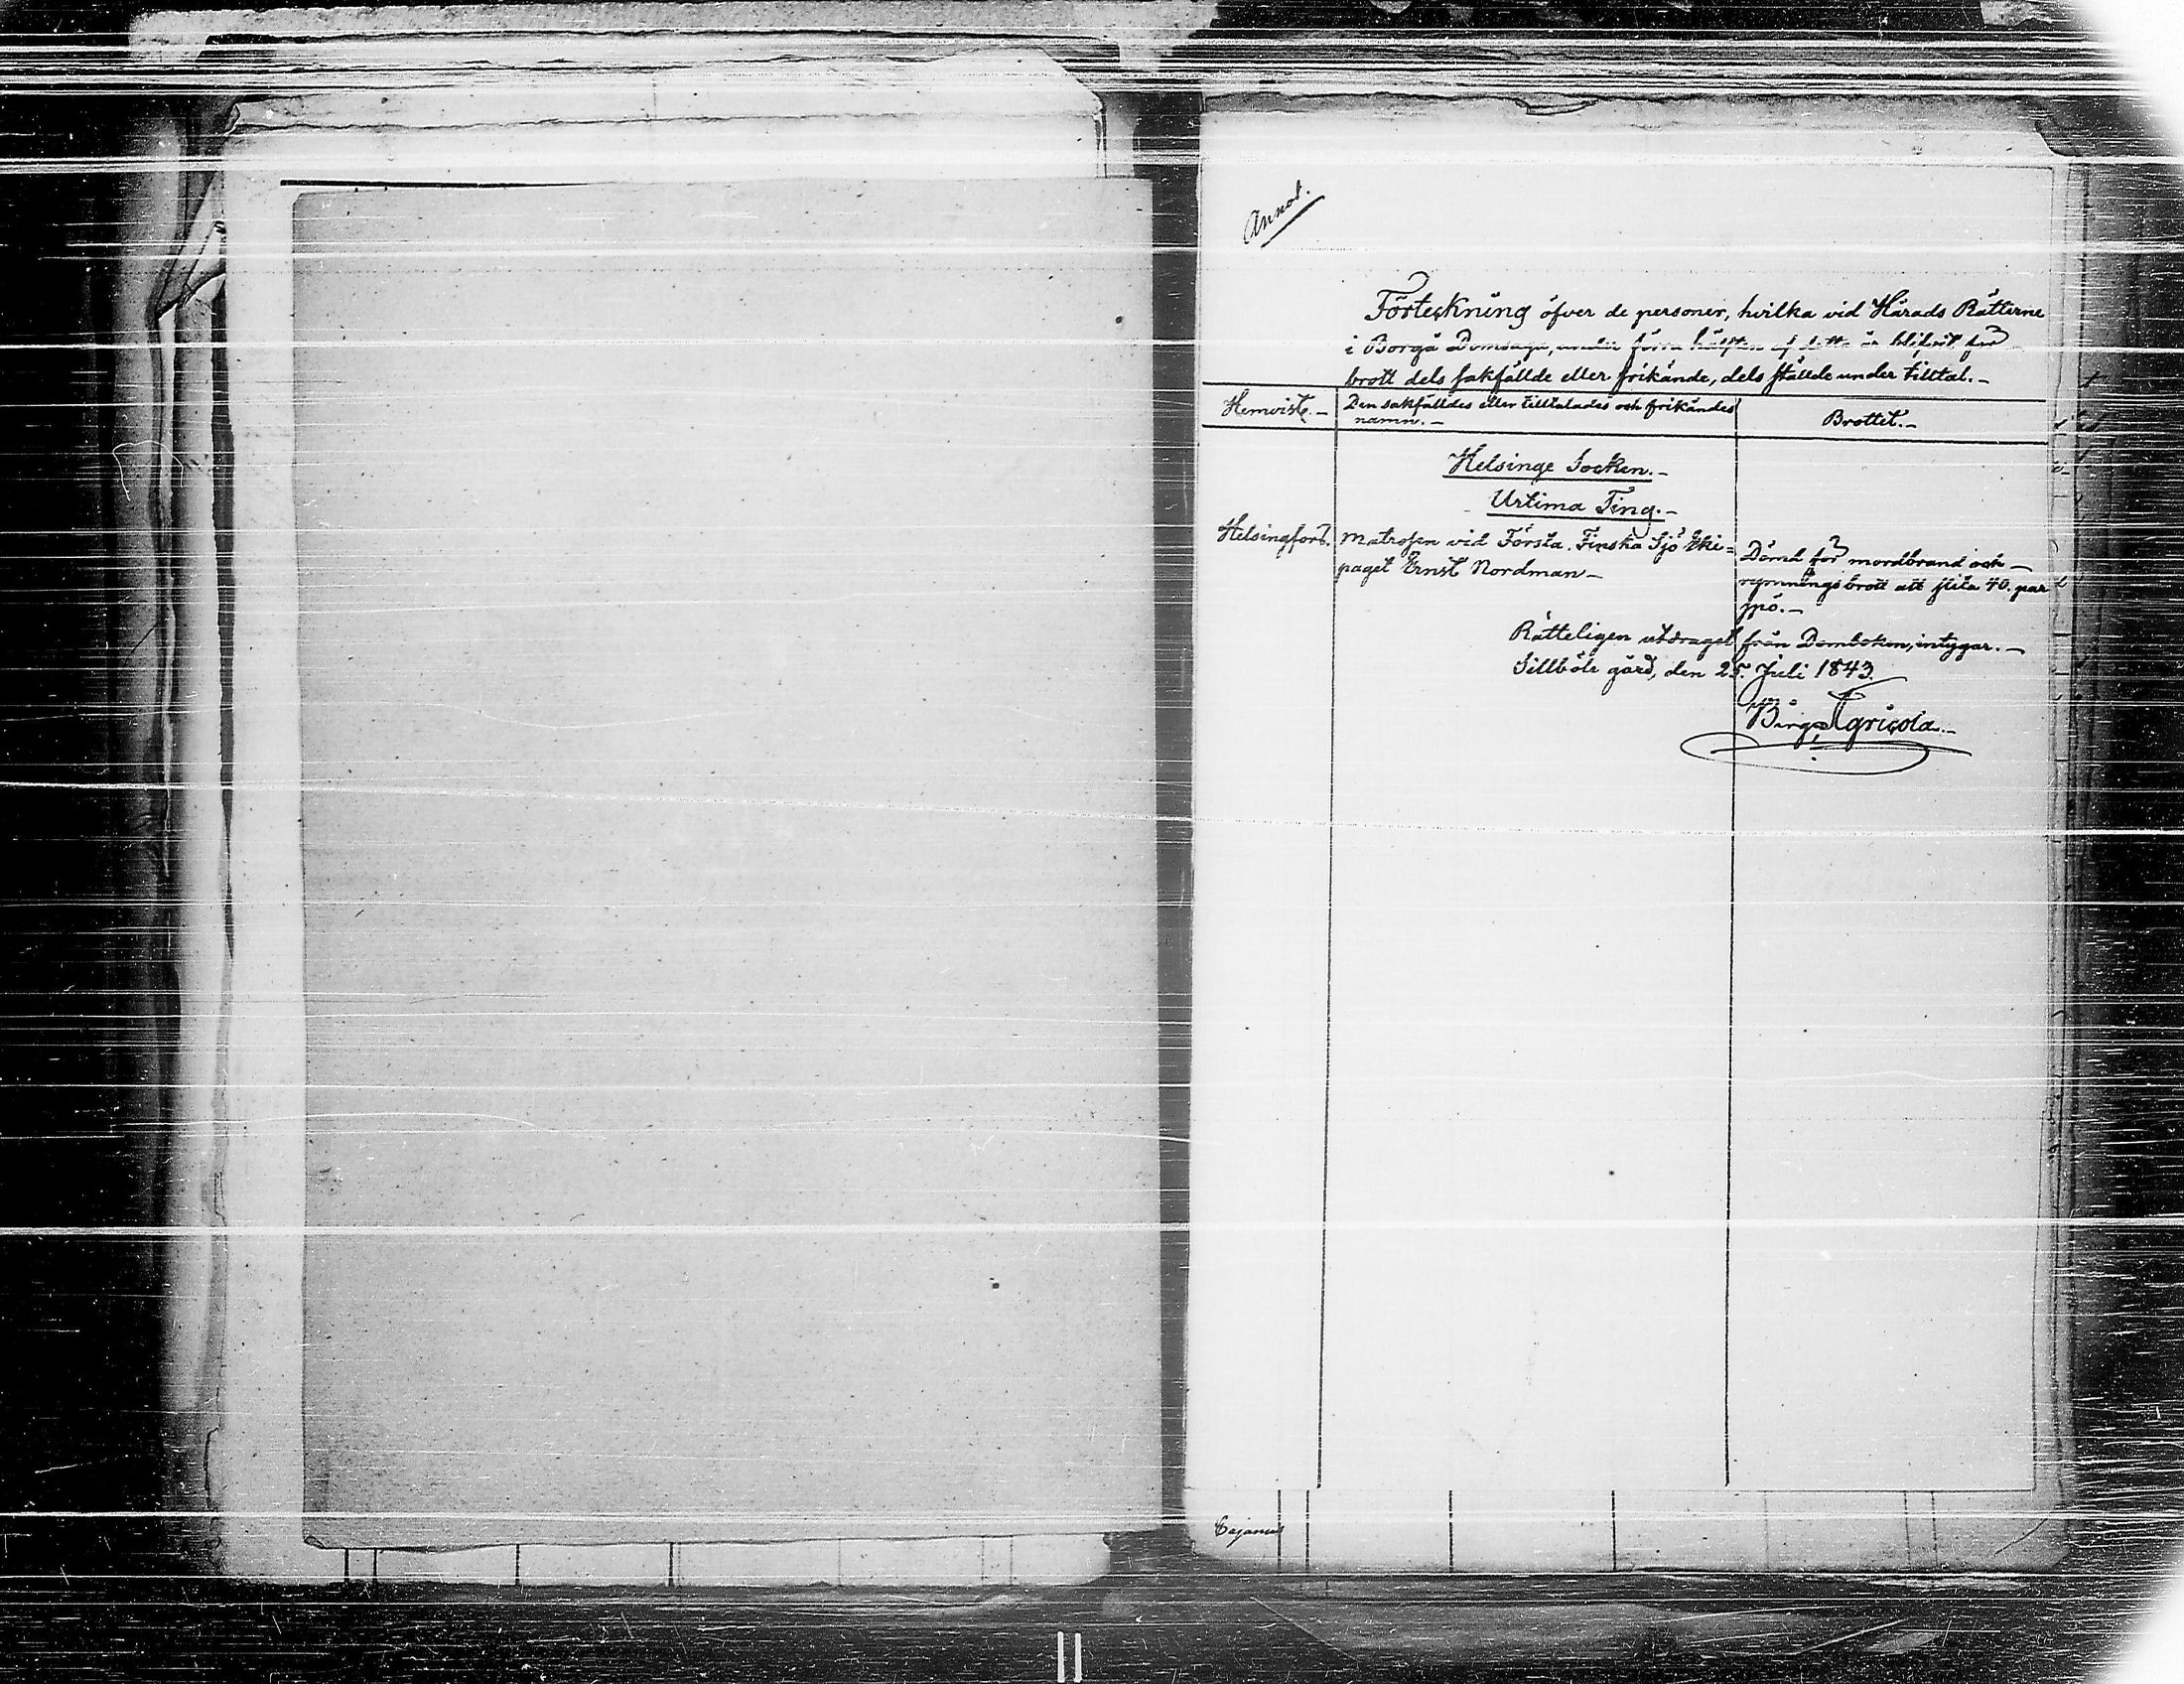 Annot.
Förteckning öfver de personer, hvilka vid Härads Rätterne
i Borgå Domsaga, under förra hälften af detta år blifvit för
brott dels sakfällde eller frikände, dels ställde under tilltal.-
Hemvist.-
Den sakfälldes eller tilltalades och frikändes
namn.-
Brottet.-
Helsinge Socken.-
Urtima Ting.-
Helsingfors.
Matrosen vid Första Finska Sjö Eki=
paget Ernst Nordman-
Dömd för mordbrand och-
rymningsbrott att slita 40. par
spö.-
Rätteligen utdraget från Domboken, intygar.-
Sillböle gård, den 25. Juli 1843.
Agricola.-
Cajanus